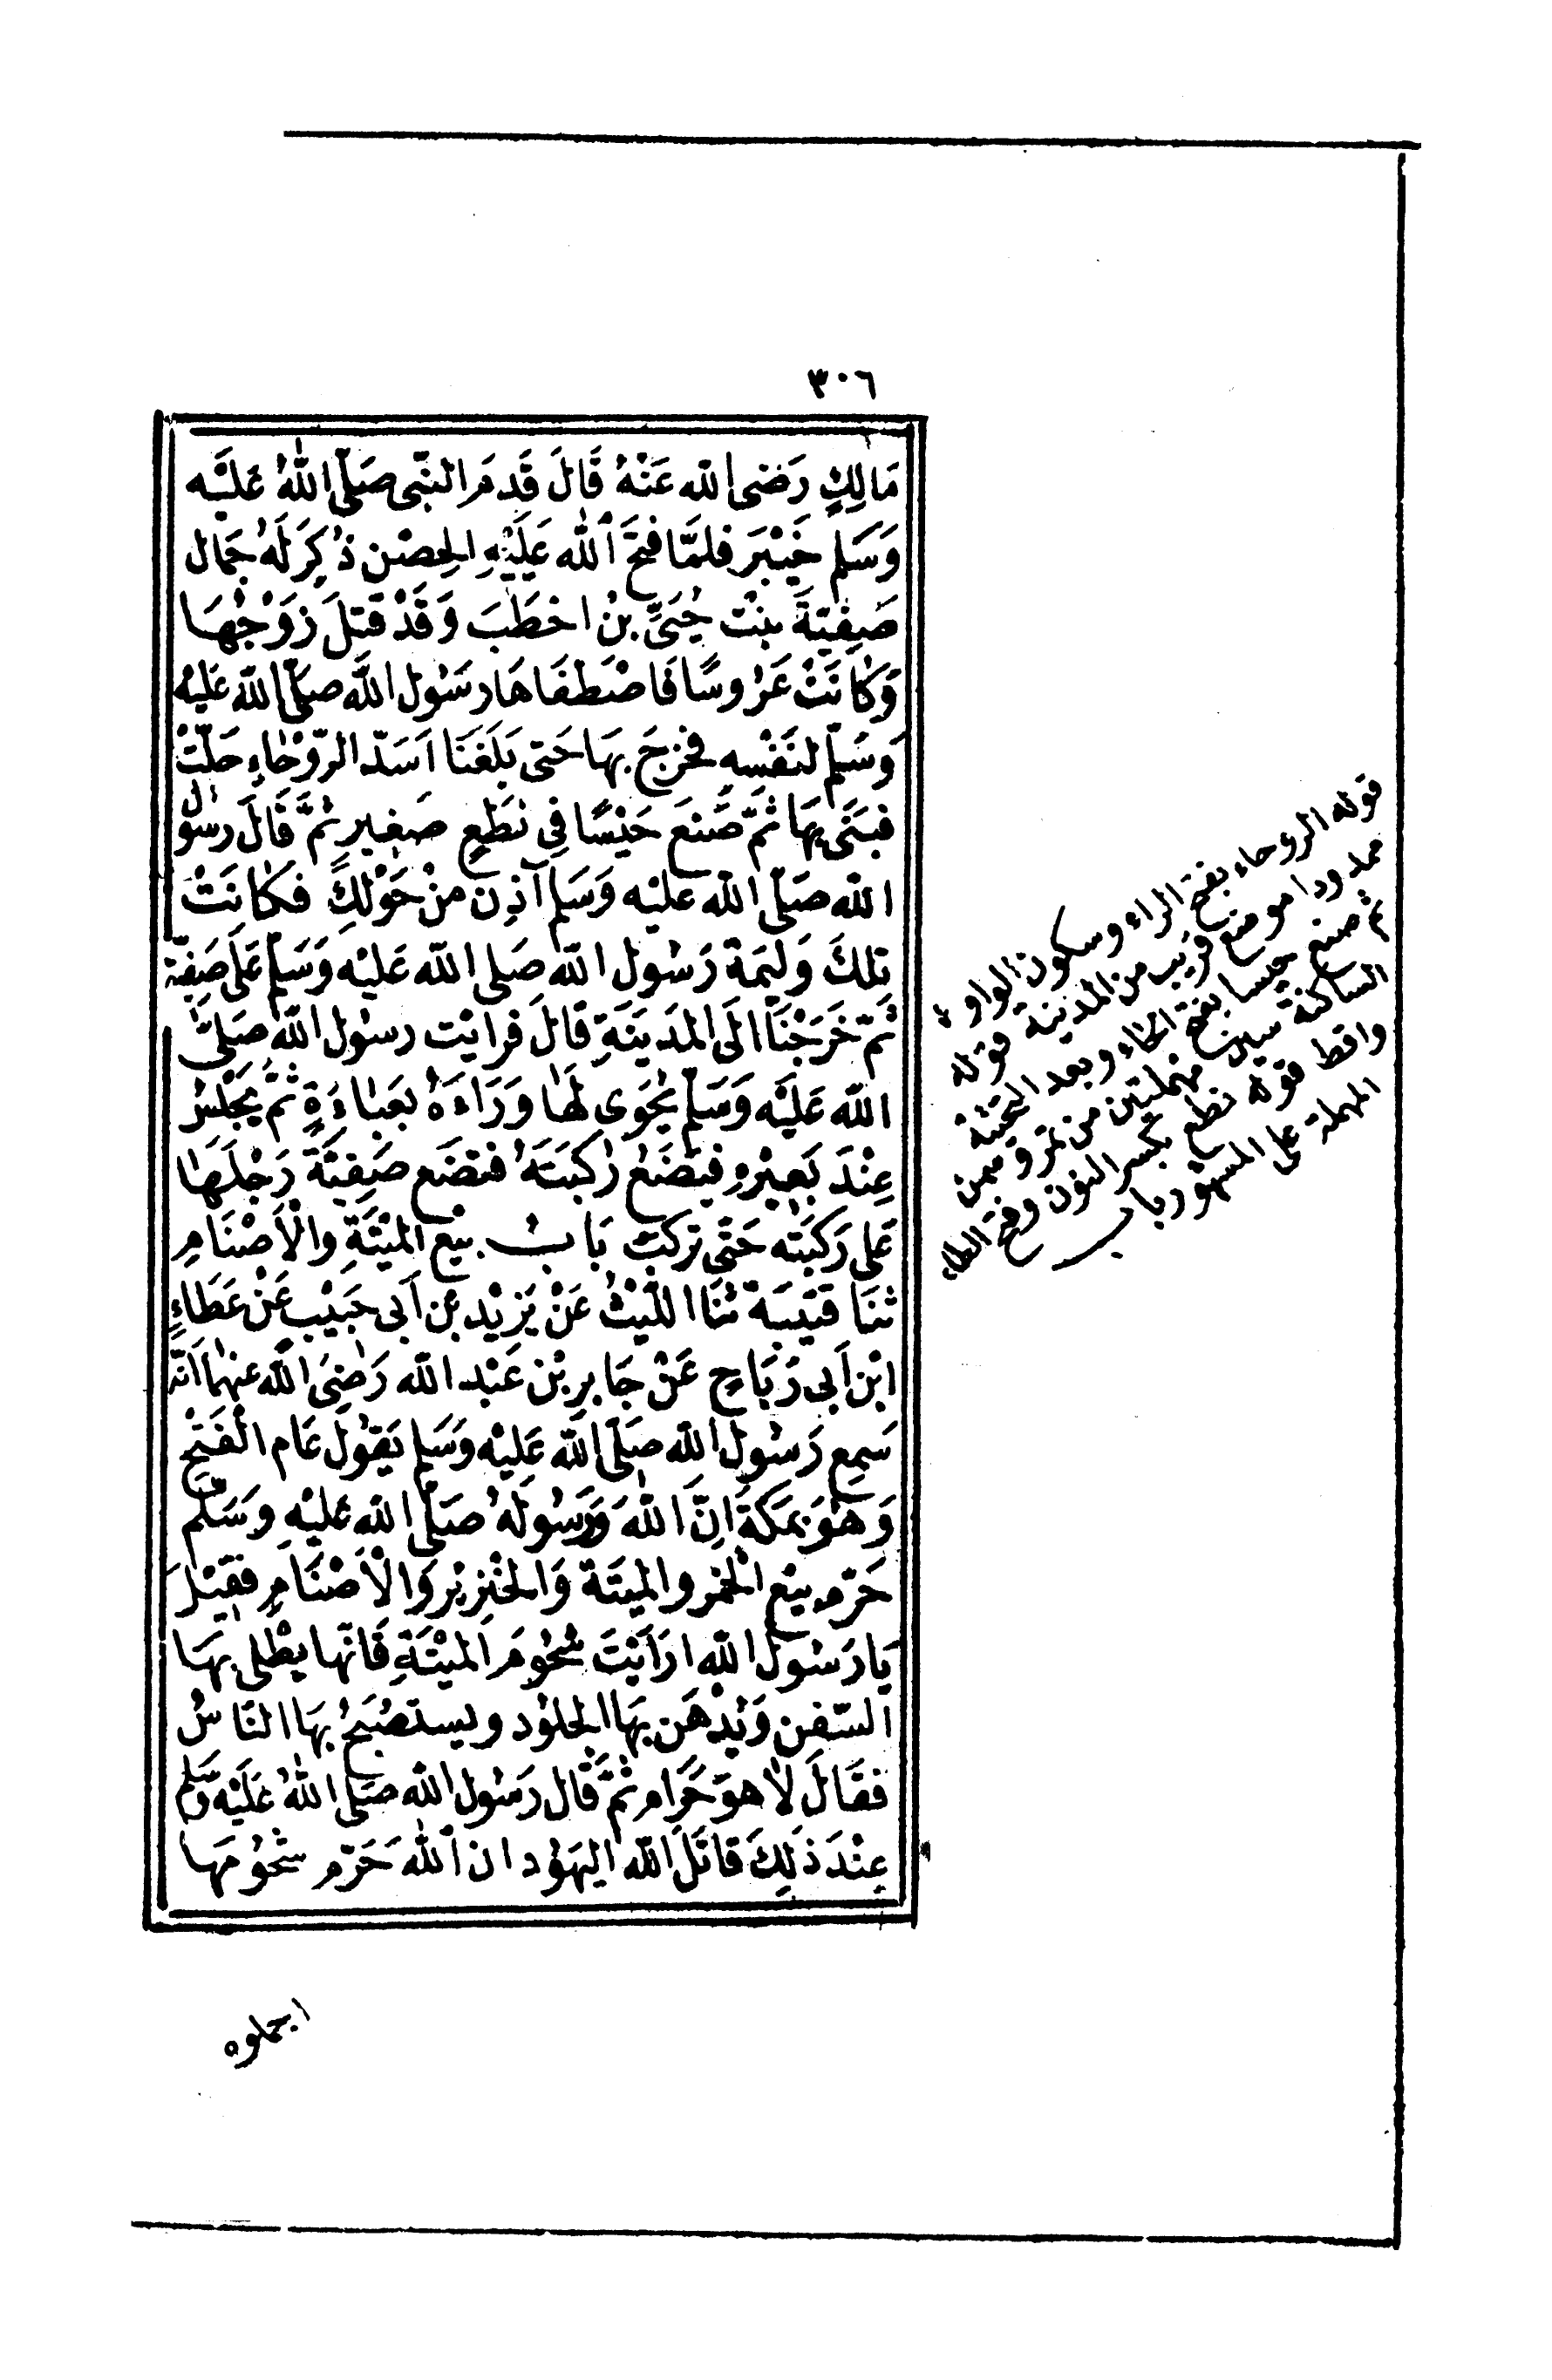 ٣٠٦
مَالِكٍ رَضى الله عَنْهُ قَالَ قَدِمَ النّبى صَلّى اللهُ عَليْه
وَسَلم خَيْبَرَ فلمَّا فتحَ الله عَلَيْهِ الحِصْن ذُكِرَ لَهُ جَمال
صَفِيّةَ بنْت حُيَىِّ بنْ اخطَبَ وَقَدْ قتلَ زَوْجُهَا
وَكانَتْ عَرُوسًا فَاصْطَفَاهَا رسَوُل الله صَلّى الله عَليْه
وَسَلّم لنَفْسِهِ فخرجَ بهَا حَتى بَلَغنَا اسَدّ الرّوْحاءِ حَلّتْ
فبَنَى بهَا ثمّ صَنعَ حَيْسًا فِي نطَعٍ صَغير ثمَّ قَالَ رسوُل
الله صَلّى الله عليْه وَسَلم آذِن منْ حَوْلكِ فكانَتْ
تلكَ وَليمَة رَسُول الله صَلى الله عَليْه وَسَلم عَلَى صَفِيّة
ثمّ خَرَجْنَا الَى المدَينَةِ قالَ فرايْت رسوُل الله صَلى
الله عَليْه وَسَلم يُحَوى لهَا وَرَاءَهُ بعَباءَةٍ ثمّ يَجْلسُ
عِنْدَ بَعيْرهِ فيَضَعُ ركبَتَهُ فتضَع صَفيّةَ رَجْلَهَا
عَلى رَكبَته حَتّى تركبَ بَابُ بيْع الميْتَةِ والْاَصْنَامِ
ثنَا قتيْبَة ثنَا الليْثُ عَنْ يَزيْد بْن اَبى حَبيْب عَنْ عَطَاءِ
ابْن اَبى رَبَاح عَنْ جَابر بْن عَبْد الله رَضِىَ الله عنهما اَنّه
سَمِع رَسُول الله صَلّى الله عَليْه وَسَلم يَقوُل عَام الْفَتْح
وَهُوَ بمَكةَ اِنّ اللهَ وَرَسُولهُ صَلّى الله عَليْهِ وَسَلّم
حَرّم بيْع الْخمْر والميتَة وَالخنْزيْر وَالْاَصْنَام فقيْلَ
يَا رَسُول الله ارَاَيْتَ شُحُومَ الميْتَةِ فَانّها يطْلى بهَا
السّفن وَيُدْهَن بهَا الجلوُد ويستصْبَحُ بهَا النّاسُ
فقَالَ لَا هوَ حَرَام ثمَّ قال رَسُول الله صَلى اللهُ عَليْه وَسَلم
عِنْدَ ذلِكَ قاتَلَ الله اليهَوُد ان اللهَ حَرّم شحُومَهَا
اجملوه
قوله الروحاء بفتح الراء وسكون الواو
ممدودا موضع قريب من المدينة قوله
ثم صنع حيسا بفتح الحاء وبعد التحتية
الساكنة سين مهملتين من تمر وسمن
واقط قوله نطع بكسر النون وفتح الطاء
المهملة على المشهور